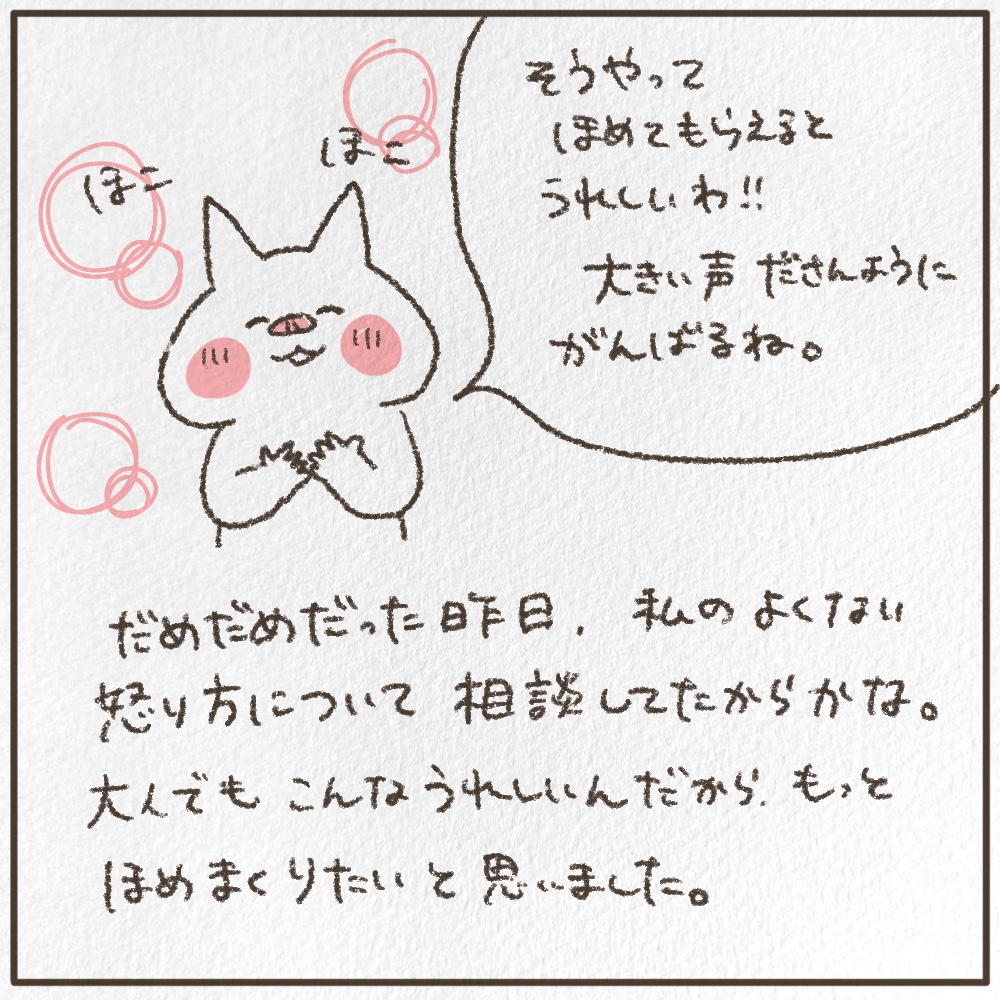 そうやって
ほめてもらえると
うれしいわ!!
大きい声 ださんように
がんばるね。
ほこ
ほこ
だめだめだった昨日、私のよくない
怒り方について 相談してたからかな。
大人でも こんなうれしいんだから、もっと
ほめまくりたいと思いました。